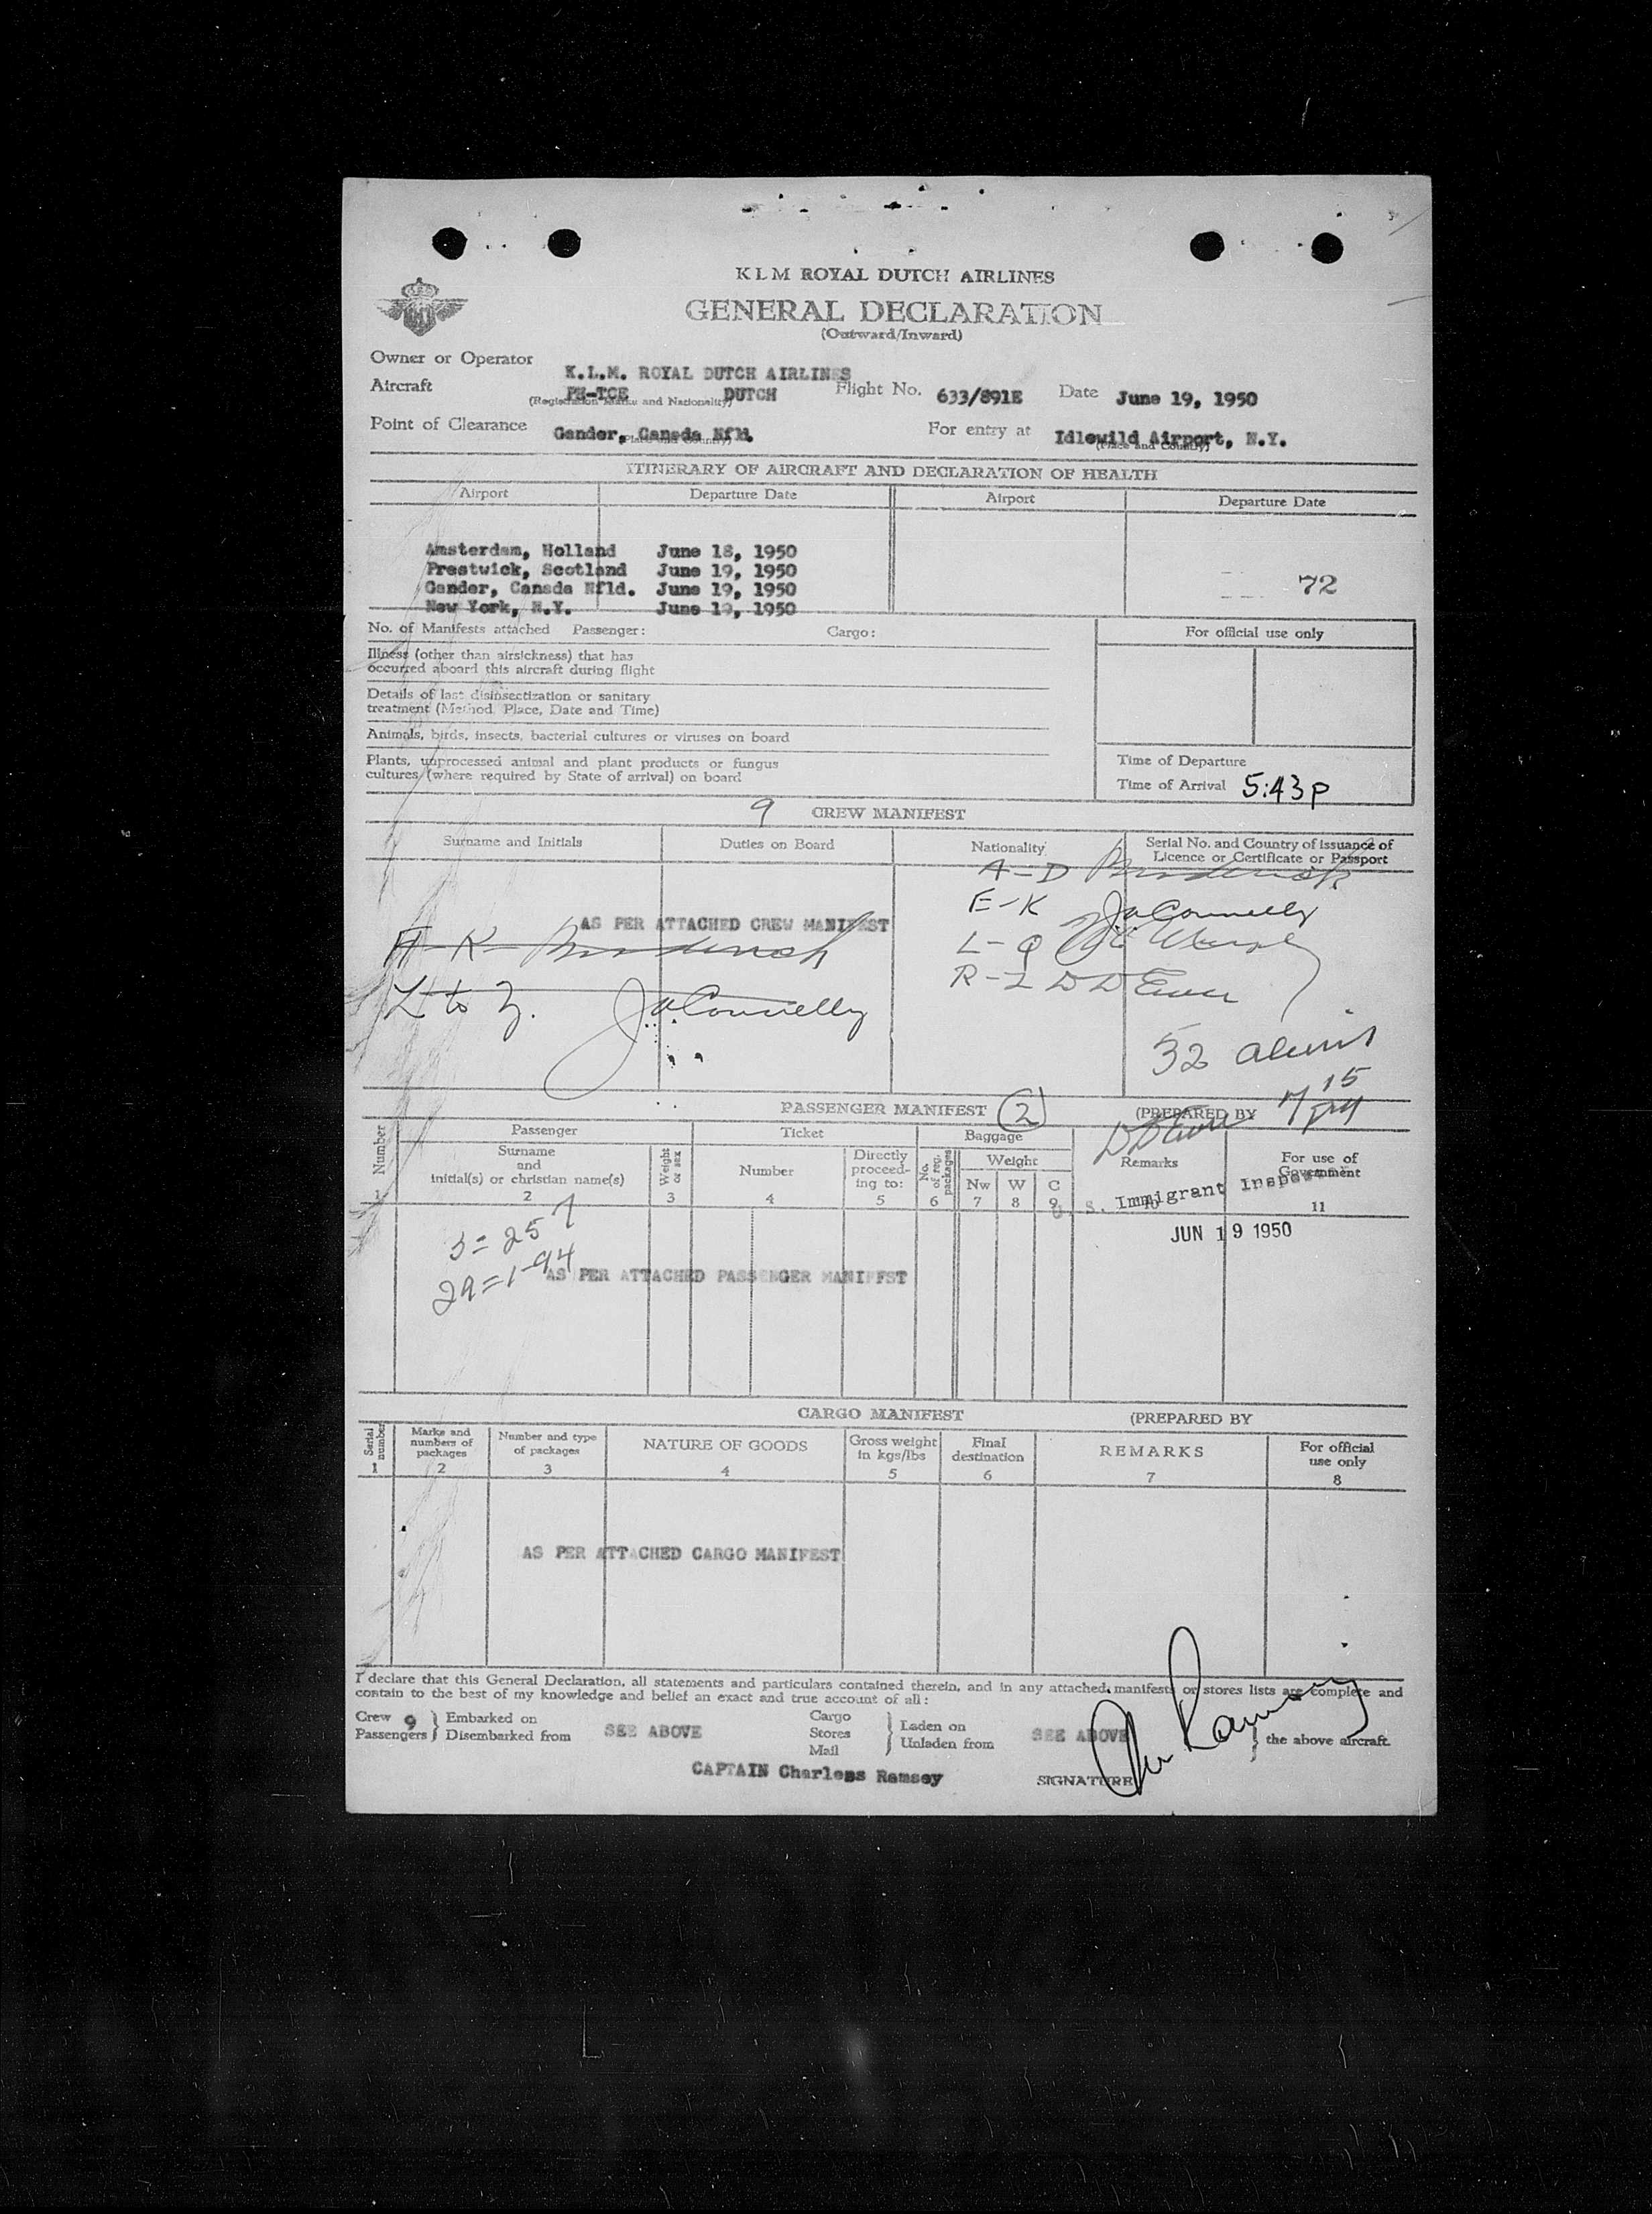 KLM ROYAL DUTCH AIRLINES
GENERAL DECLARATION
(Outward/Inward)
Owner or Operator K.L.M. ROYAL DUTCH AIRLINES
Aircraft PH-TCE DUTCH Flight No. 633/891E Date June 19, 1950
(Registration Marks and Nationality)
Point of Clearance Gander, Canada Nfld. For entry at Idlewild Airport, N.Y.
(Place and Country) (Place and Country)
ITINERARY OF AIRCRAFT AND DECLARATION OF HEALTH
Airport Departure Date Airport Departure Date
Amsterdam, Holland June 18, 1950
Prestwick, Scotland June 19, 1950
Gander, Canada Nfld. June 19, 1950 72
New York, N.Y. June 19, 1950
No. of Manifests attached Passenger: Cargo: For official use only
Illness (other than airsickness) that has
occurred aboard this aircraft during flight
Details of last disinsectization or sanitary
treatment (Method, Place, Date and Time)
Animals, birds, insects, bacterial cultures or viruses on board
Plants, unprocessed animal and plant products or fungus
cultures (where required by State of arrival) on board
Time of Departure
Time of Arrival 5:43 P
9 CREW MANIFEST
Surname and Initials Duties on Board Nationality Serial No. and Country of issuance of
Licence or Certificate or Passport
A-D Broderick
E-K JaConnelly
AS PER ATTACHED CREW MANIFEST
A-K Broderick
L-Q
R-Z DD Ewer
L to Z. JaConnelly
32 aliens
7 15 PM
PASSENGER MANIFEST 2 (PREPARED BY
DD Ewer
Number Passenger Ticket Baggage
Surname
and
initial(s) or christian name(s)
Weight or sex Number Directly proceeding to: No. of reg. packages Weight Remarks For use of Government
Nw W C
1 2 3 4 5 6 7 8 9 10 11
U. S. Immigrant Inspector
JUN 19 1950
3 = 257
29 = 1-94
AS PER ATTACHED PASSENGER MANIFFST
CARGO MANIFEST (PREPARED BY
Serial number Marks and numbers of packages Number and type of packages NATURE OF GOODS Gross weight in kgs/lbs Final destination REMARKS For official use only
1 2 3 4 5 6 7 8
AS PER ATTACHED CARGO MANIFEST
I declare that this General Declaration, all statements and particulars contained therein, and in any attached manifests or stores lists are complete and
contain to the best of my knowledge and belief an exact and true account of all:
Crew 9 Embarked on Cargo Laden on
Passengers Disembarked from SEE ABOVE Stores Unladen from SEE ABOVE the above aircraft.
Mail
CAPTAIN Charless Ramsey SIGNATURE